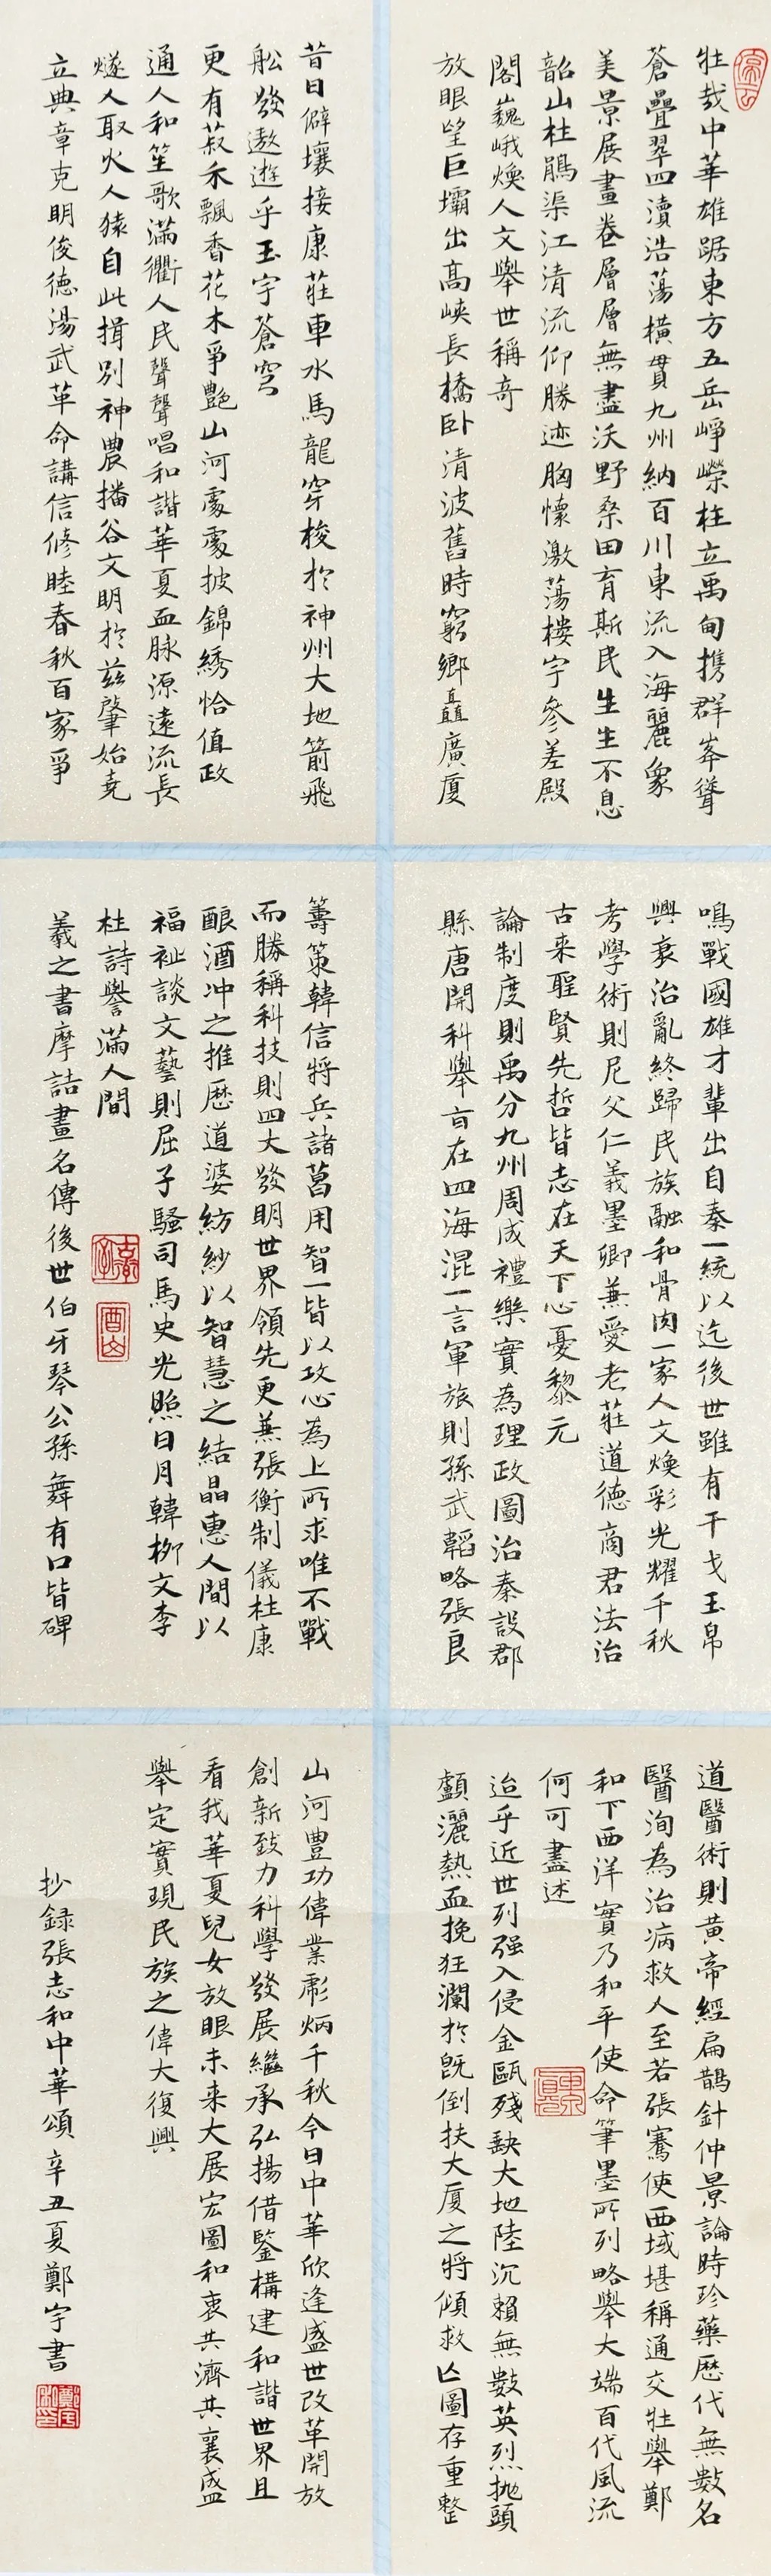 壯哉中華雄踞東方五岳崢嶸柱立禹甸攜群峯聳
蒼疊翠四瀆浩蕩橫貫九州納百川東流入海麗象
美景展畫卷層層無盡沃野桑田育斯民生生不息
韶山杜鵑渠江清流仰勝迹胸懷激蕩樓宇參差殿
閣巍峨煥人文舉世稱奇
放眼望巨壩出高峽長橋卧清波舊時窮鄉矗廣廈
昔日僻壤接康莊車水馬龍穿梭於神州大地箭飛
舩發遨遊乎玉宇蒼穹
更有菽禾飄香花木爭艷山河處處披錦綉恰值政
通人和笙歌滿衢人民聲聲唱和諧華夏血脉源遠流長
燧人取火人猿自此揖別神農播谷文明於兹肇始堯
立典章克明俊德湯武革命講信修睦春秋百家爭
鳴戰國雄才輩出自秦一統以迄後世雖有干戈玉帛
興衰治亂終歸民族融和骨肉一家人文煥彩光耀千秋
考學術則尼父仁義墨卿兼愛老莊道德商君法治
古来聖賢先哲皆志在天下心憂黎元
論制度則禹分九州周成禮樂實為理政圖治秦設郡
縣唐開科舉旨在四海混一言軍旅則孫武韜略張良
籌策韓信將兵諸葛用智一皆以攻心為上所求唯不戰
而勝稱科技則四大發明世界領先更兼張衡制儀杜康
釀酒冲之推歷道婆紡紗以智慧之結晶惠人間以
福祉談文藝則屈子騷司馬史光照日月韓柳文李
杜詩譽滿人間
羲之書摩詰畫名傳後世伯牙琴公孫舞有口皆碑
道醫術則黄帝經扁鵲針仲景論時珍藥歷代無數名
醫洵為治病救人至若張騫使西域堪稱通交壯舉鄭
和下西洋實乃和平使命筆墨所列略舉大端百代風流
何可盡述
迨乎近世列强入侵金甌殘缺大地陸沉賴無數英烈抛頭
顱灑熱血挽狂瀾於既倒扶大廈之將傾救亡圖存重整
山河豊功偉業彪炳千秋今日中華欣逢盛世改革開放
創新致力科學發展繼承弘揚借鑒構建和諧世界且
看我華夏兒女放眼未来大展宏圖和衷共濟共襄盛
舉定實現民族之偉大復興
抄錄張志和中華頌辛丑夏鄭宇書